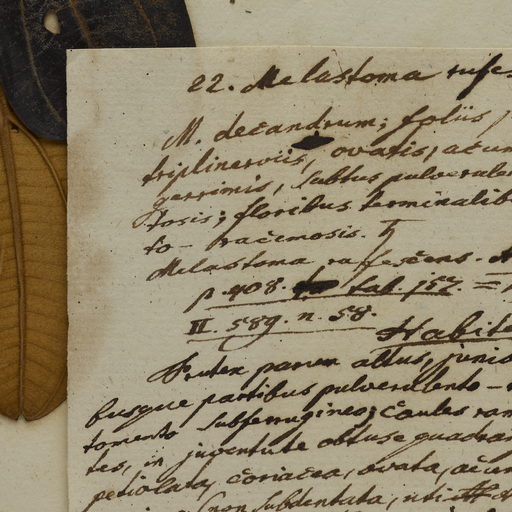 22. Melastoma rufes
M. decandrum; foliis
triplinerviis, ovatis, acum
gerrimis, subtus pulverulen
tosis; floribus terminalib
to-racemosis. ♄
Melastoma rufescens. A
p. 408. tab. 157 =
II. 589. n. 58.
Habite
Frutex parum altus, junio
busque partibus pulverulento-
tomento subferrugineo; caules ram
tes, in juventute obtuse quadran
petiolata, coriacea, ovata, acum
(non subdentata, uti